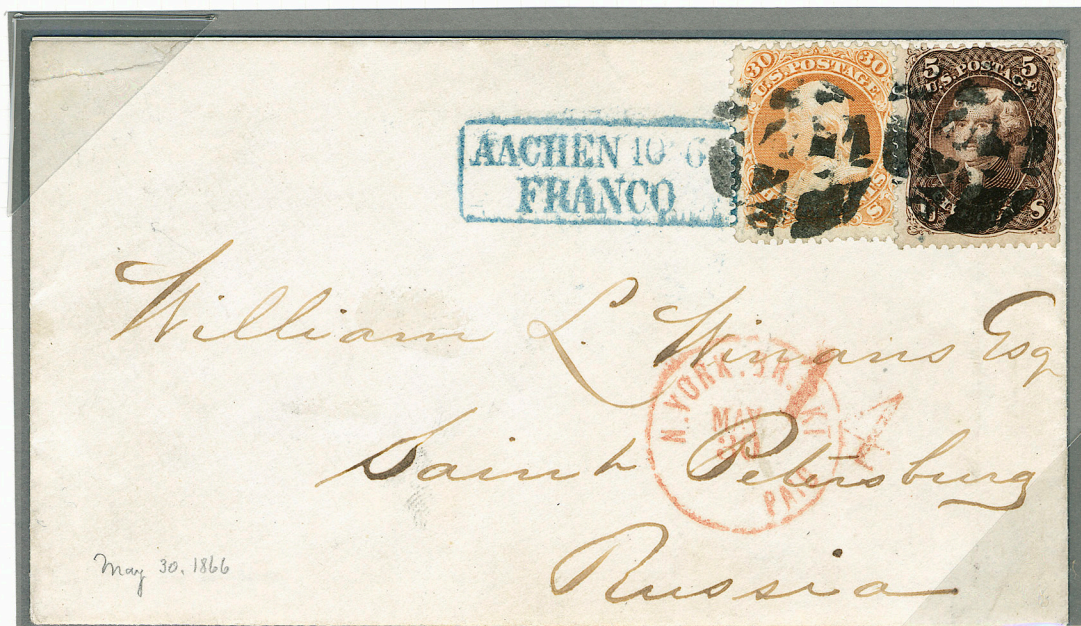 30 30
U.S. POSTAGE
5 5
U.S. POSTAGE
U S
AACHEN 10 6
FRANCO
William L. Winans Esq
N. YORK. BR. PKT
MAY
30
PAID
Saint Petersburg
Russia
May 30, 1866